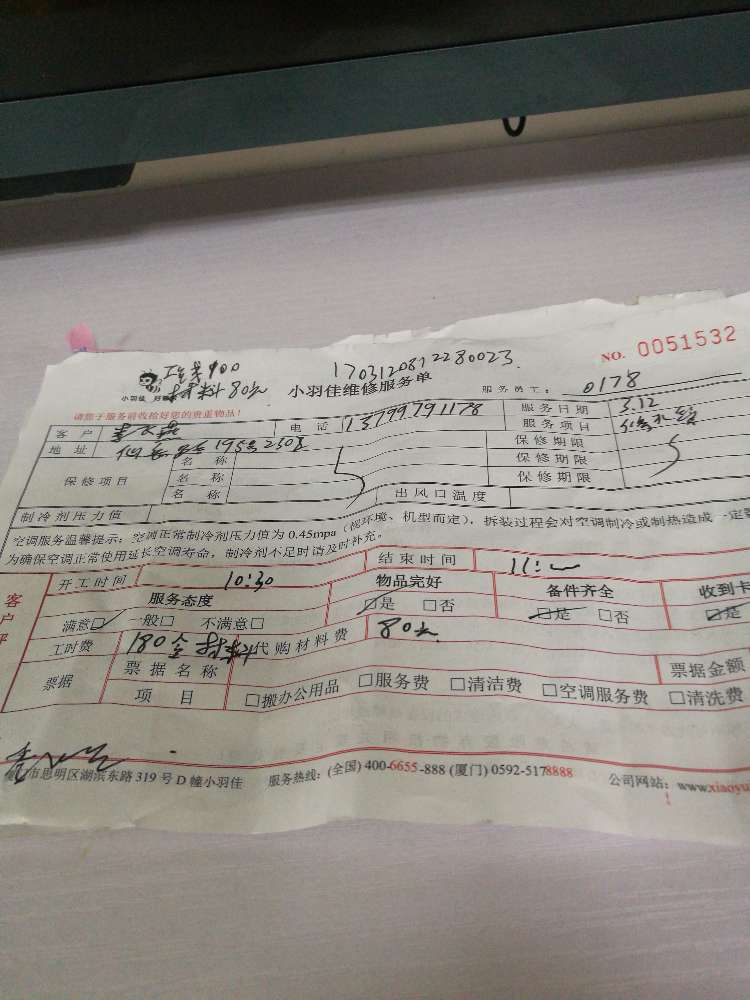 NO. 0051532
1703120812280023
材料80元
小羽佳
小羽佳维修服务单
服务员工: 0178
请您于服务前收拾好您的贵重物品!
客 户
电 话 13799791178
服务日期 3.12
地 址 195号230室
服务项目
保修项目
名 称
保修期限
名 称
保修期限
名 称
保修期限
制冷剂压力值
出风口温度
空调服务温馨提示: 空调正常制冷剂压力值为 0.45mpa (视环境、机型而定), 拆装过程会对空调制冷或制热造成一定
为确保空调正常使用延长空调寿命, 制冷剂不足时请及时补充。
客户评
开工时间 10:30
结束时间 11:
服务态度
物品完好
备件齐全
收到卡
满意□ 一般□ 不满意□
□是 □否
□是 □否
□是
工时费 180含材料
代购材料费 80元
票据
票据名称
票据金额
项 目
□搬办公用品 □服务费 □清洁费 □空调服务费 □清洗费
市思明区湖滨东路 319 号 D 幢小羽佳 服务热线: (全国) 400-6655-888 (厦门) 0592-5178888 公司网站: www.xiaoyu